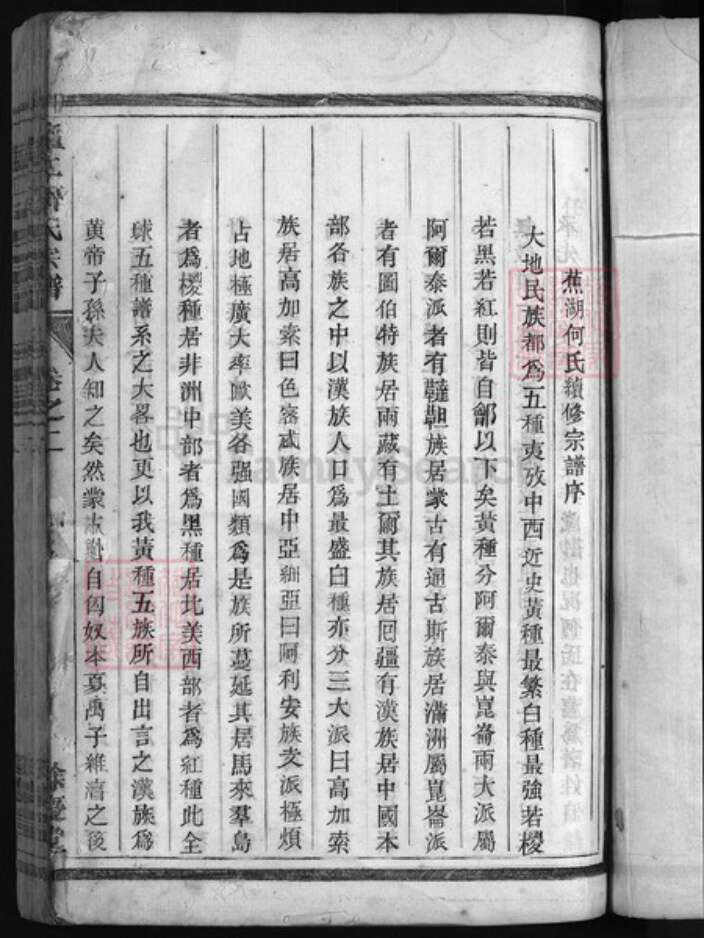 蕉湖何氏續修宗譜序
大地民族都爲五種夷攷中西近史黃種最繁白種最強若椶
若黑若紅則皆自鄶以下矣黃種分阿爾泰與崑崙兩大派屬
阿爾泰派者有韃靼族居蒙古有通古斯族居滿洲屬崑崙派
者有圖伯特族居兩藏有土爾其族居囘疆有漢族居中國本
部各族之中以漢族人口爲最盛白種亦分三大派曰高加索
族居高加索曰色密忒族居中亞細亞曰阿利安族支派極煩
占地極廣大率歐美各强國類爲是族所蔓延其居馬來羣島
者爲椶種居非洲中部者爲黑種居北美西部者爲紅種此全
球五種譜系之大畧也更以我黃種五族所自出言之漢族爲
黃帝子孫夫人知之矣然蒙古自匈奴本夏禹子維淯之後
氏宗譜
卷之二
餘慶堂